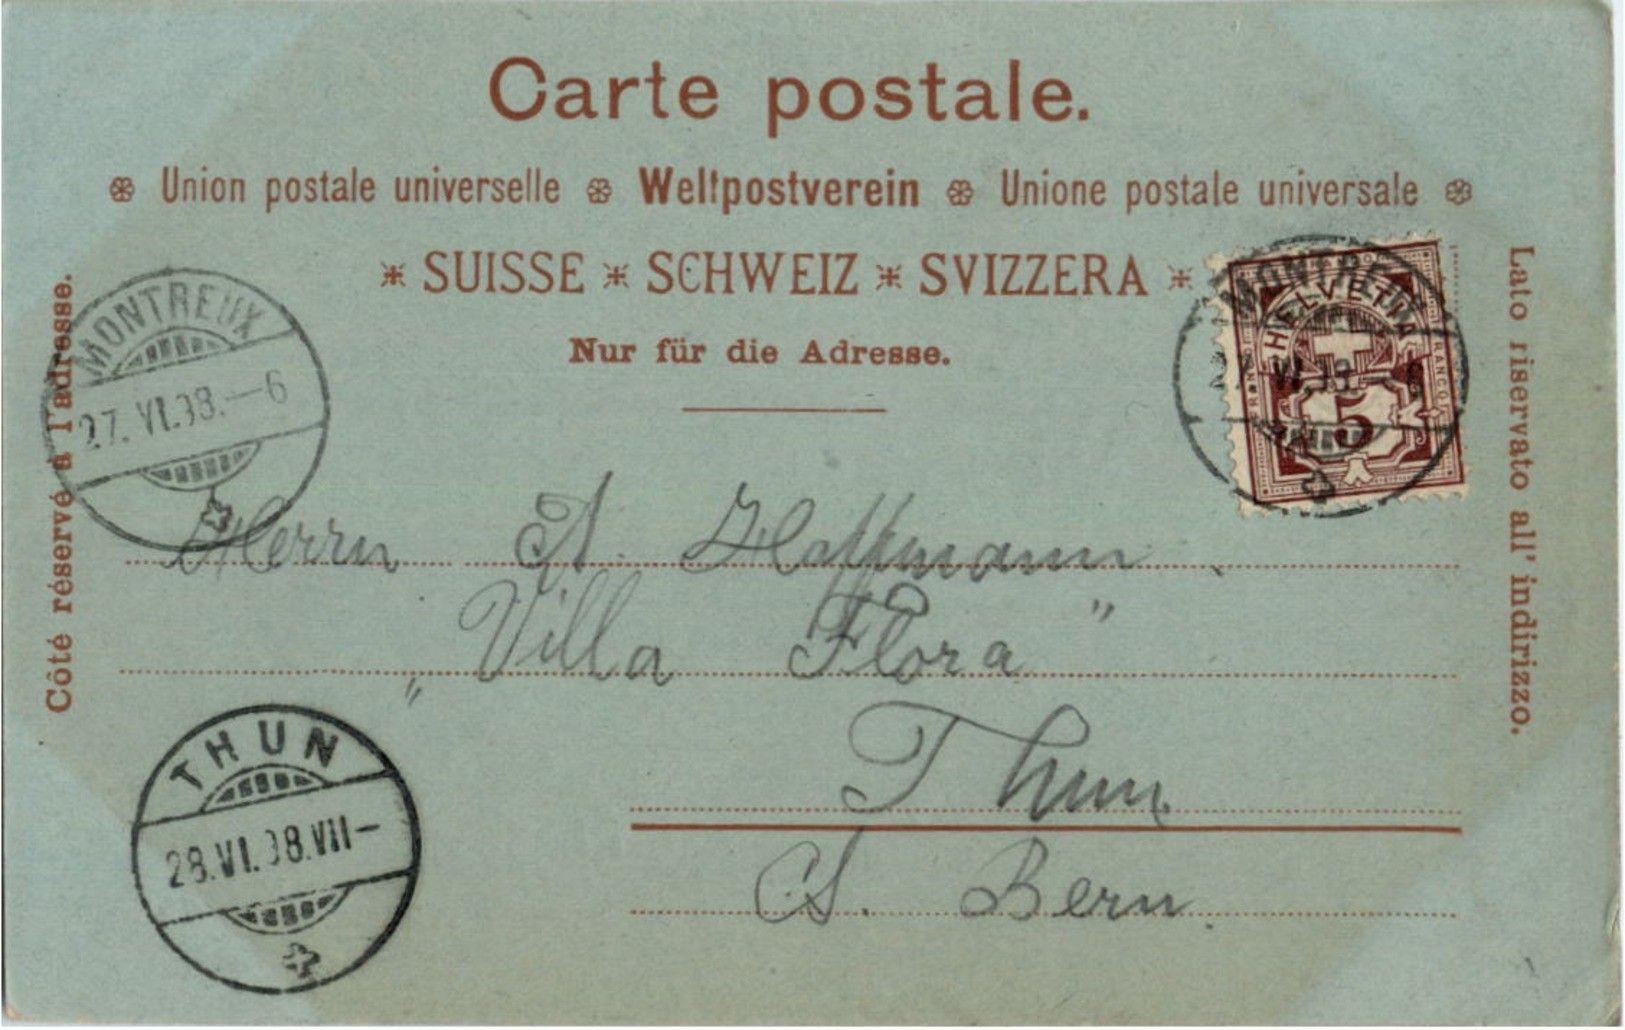 Carte postale.
Union postale universelle Weltpostverein Unione postale universale
SUISSE SCHWEIZ SVIZZERA
Nur für die Adresse.
Côté réservé à l'adresse.
Lato riservato all' indirizzo.
MONTREUX
27. VI.98.—6
MONTREUX
HELVETIA
FRANCO
5
Herrn A. Hoffmann
"Villa Flora"
Thun
Bern
THUN
28.VI.98.VII—